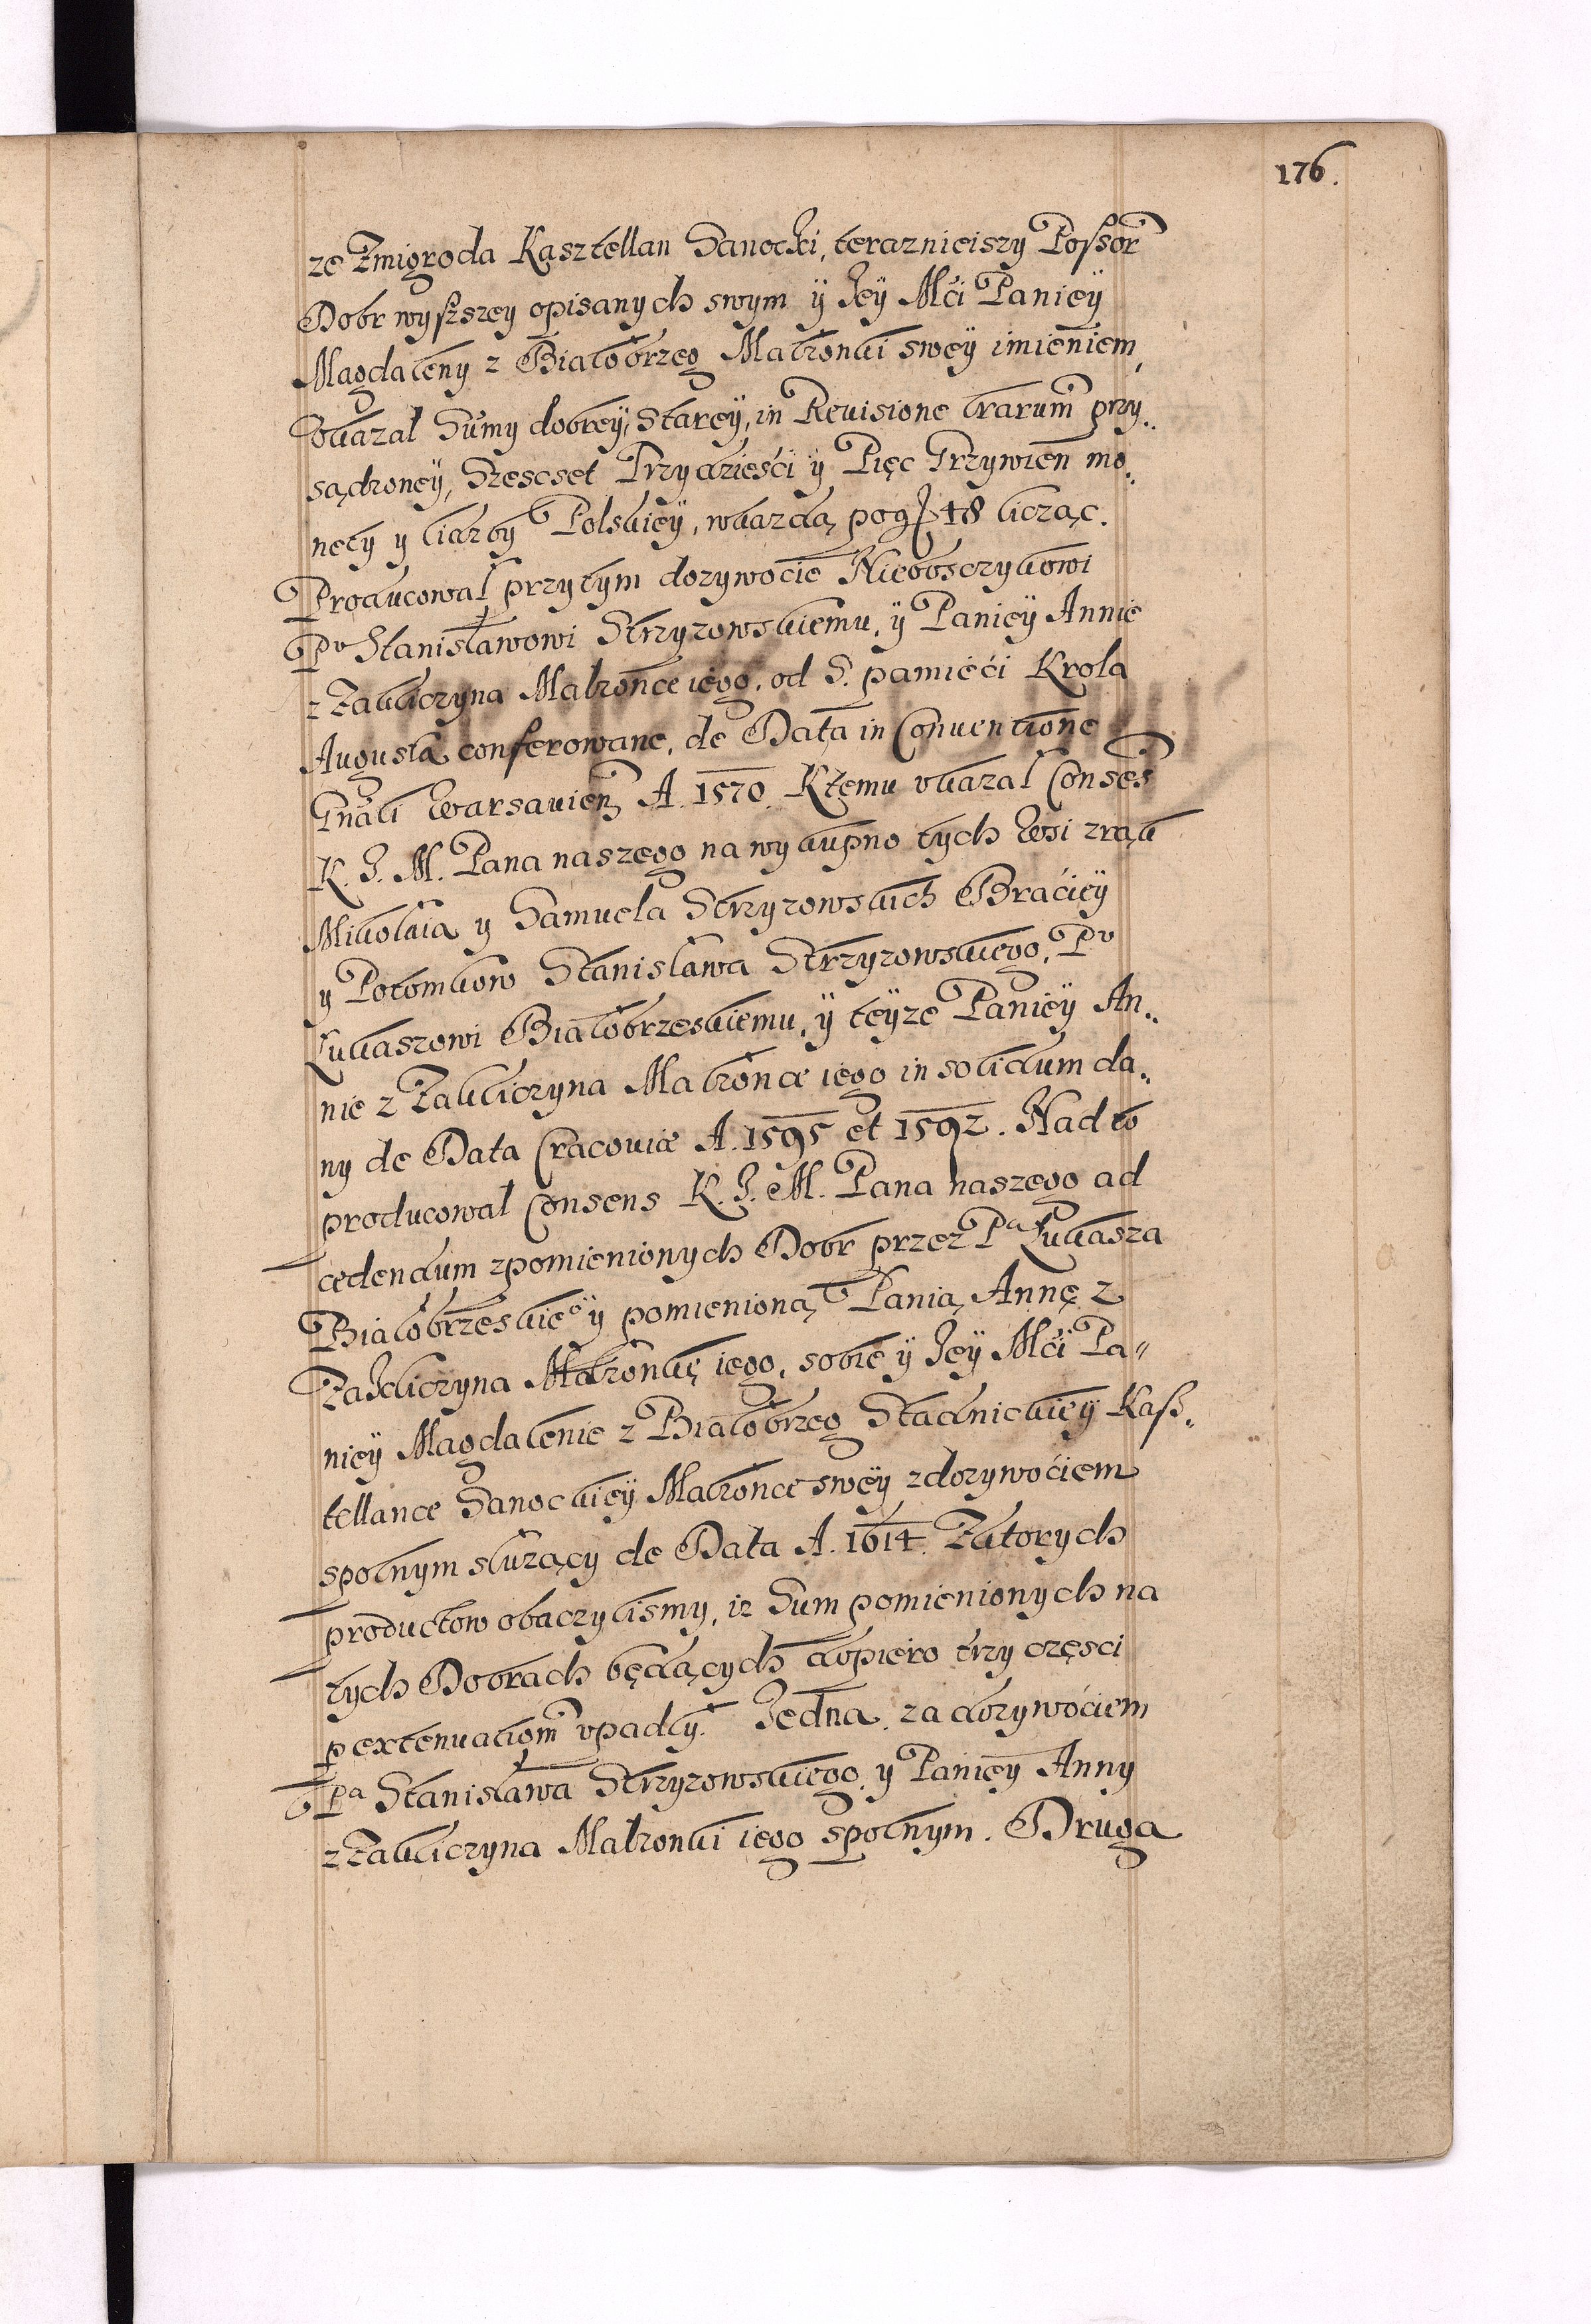 176.
ze Zmigroda Kasztellan Sanocki, teraznieiszy Possor
Dobr wyszszey opisanych swym ÿ Jeÿ Mći Panieÿ
Magdaleny z Białobrzeg Małzonki sweÿ imieniem,
vkazał Sumy dobreÿ, Stareÿ, in Reuisione lrarum przy„
sądzoneÿ, Szescset Trzydzieści ÿ Pięc Grzywien mo„
nety y liczby Polskieÿ, w kazdą po gr 48 licząc.
Producował przytym dozywocie Nieboszczykowi
Pv Stanisławowi Strzyzowskiemu, ÿ Panieÿ Annie
z Zakliczyna Małzonce iego, od S. pamiěći Krola
Augusta conferowane, de Data in Conuentione
Gnali Warsauien A. 1570. Ktemu vkazał Conses
K. J. M. Pana naszego na wykupno tych Wsi z rąk
Mikołaia y Samuela Strzyzowskich Braćieÿ
y Potomkow Stanisława Strzyzowskiego, Pv
Łukaszowi Białobrzeskiemu, ÿ teÿze Panieÿ An„
nie z Zakliczyna Małzonce iego in solidum da„
ny de Data Cracouiæ A. 1595 et 1592. Nad to
producował Consens K. J. M. Pana naszego ad
cedendum zpomienionych Dobr przez Pa Łukasza
Białobrzeskieo ÿ pomienioną Panią Annę z
Zakliczyna Małzonkę iego, sobie ÿ Jeÿ Mći Pa„
nieÿ Magdalenie z Białobrzeg Stadnickieÿ Kasz„
tellance Sanockieÿ Małzonce sweÿ z dozywoćiem
społnym słuzący de Data A. 1614. Z ktorych
productow obaczylismy, iz Sum pomienionych na
tych Dobrach będących dopiero trzy częsci
p extenuationem vpadły. Jedna, za dozywoćiem
Pa Stanisława Strzyzowskiego, y Panieÿ Anny
z Zakliczyna Małzonki iego społnym. Druga